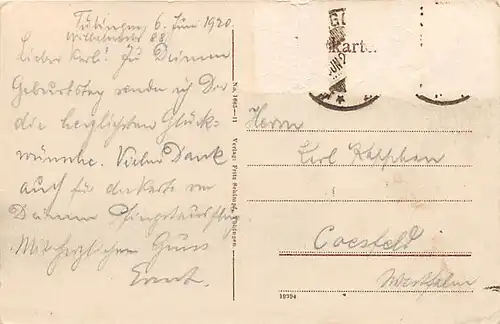 Tübingen, 6. Juni 1920.
Lieber Karl! Zu Deinem
Geburtstag sende ich Dir
die herzlichsten Glück-
wünsche. Vielen Dank
auch für die Karte von
Deinem Pfingstausflug.
Mit herzlichem Gruss
Ernst.
No. 1685—11 Verlag: Fritz
Karte
Herrn
Karl
Coesfeld
Westfalen
19294